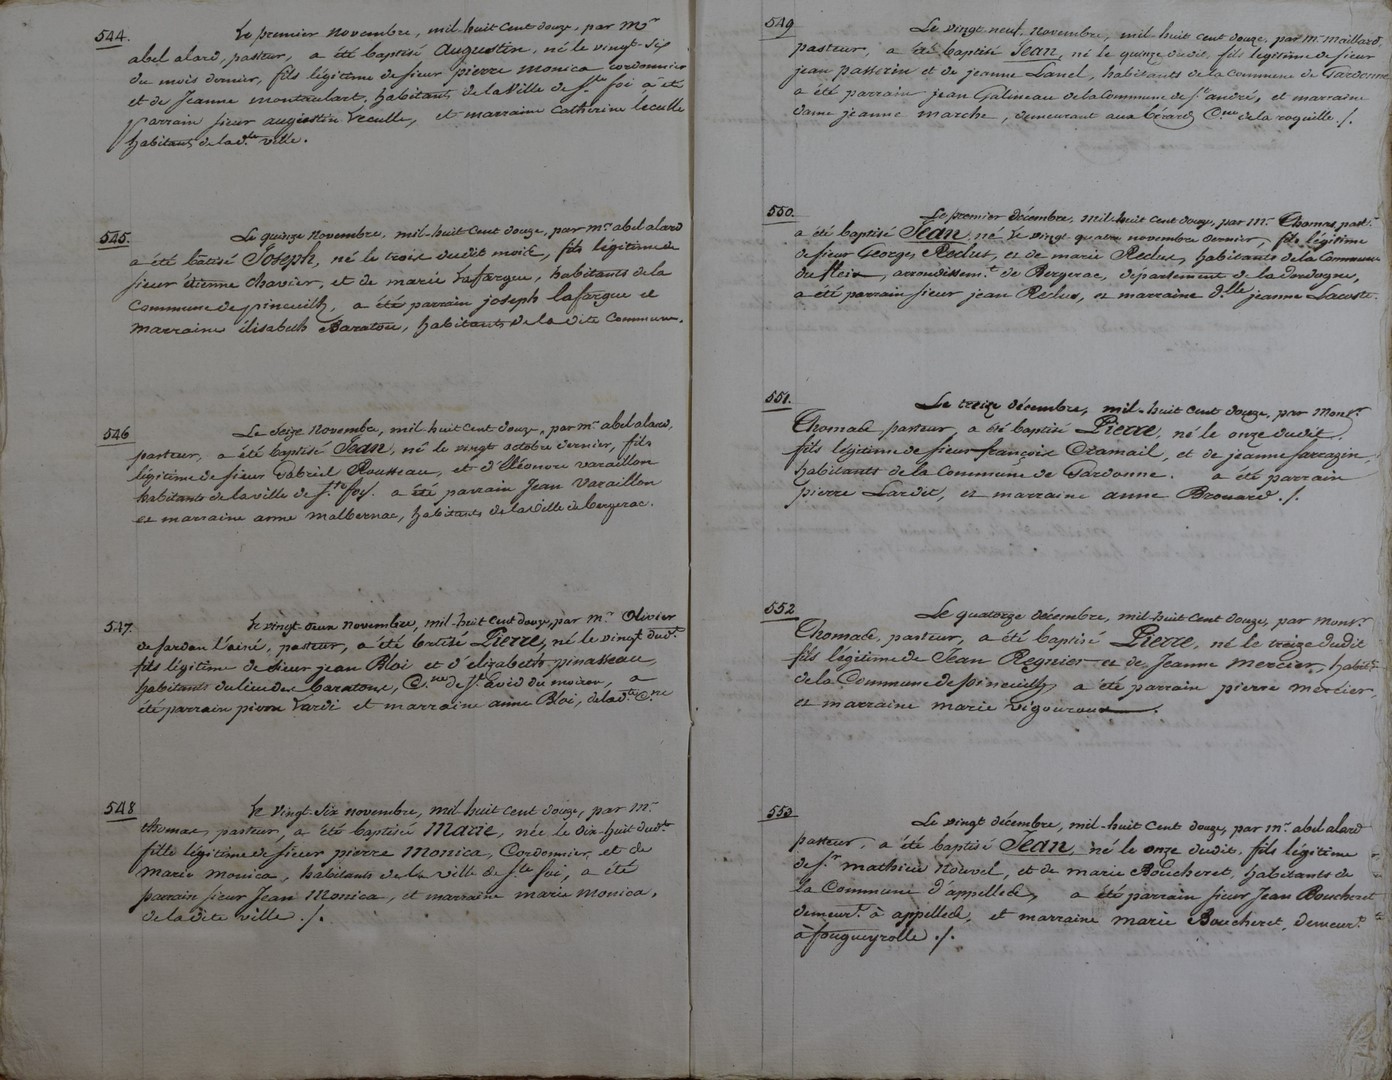 544. Le premier novembre, mil huit cent douze, par Mr
abel alard, pasteur, a été baptisé Augustin, né le vingt-six
du mois dernier, fils légitime de sieur pierre Monica cordonnier
et de Jeanne montaulart, habitants de la Ville de Ste foi, a été
parrain sieur augustin Leculle, et marraine Catherine leculle
habitants de la dte ville.
545. Le quinze novembre, mil-huit cent douze, par mr abel alard
a été batisé Joseph, né le trois dudit mois, fils légitime de
sieur étienne Chavier, et de marie Lafargue, habitants de la
Commune de pineuilh, a été parrain joseph lafargue et
marraine élisabeth Baraton, habitants de la dite Commune.
546 Le seize novembre, mil-huit cent douze, par mr abel alard,
pasteur, a été baptisé Jean, né le vingt octobre dernier, fils
légitime de sieur Gabriel Rousseau, et d'Eléonore varaillon
habitants de la ville de Ste foy. a été parrain Jean Varaillon
et marraine anne Malbernac, habitants de la ville de bergerac.
547. Le vingt-deux novembre, mil-huit cent douze, par mr Olivier
de sardan l'ainé, pasteur, a été batisé Pierre, né le vingt dudt
fils légitime de sieur jean Bloi et d'élizabeth pinasseau,
habitants du lieu des baratons, Cne de St avid du moiron, a
été parrain pierre Vardi et marraine anne Bloi, de la dte Cne
548 Le vingt-six novembre, mil-huit cent douze, par mr
thomas, pasteur, a été baptisé Marie, née le dix-huit dudt
fille légitime de sieur pierre Monica, Cordonnier, et de
Marie Monica, habitants de la ville de Ste foi, a été
parrain sieur Jean Monica, et marraine marie Monica,
de la dite ville ./.
549 Le vingt neuf novembre, mil-huit cent douze, par mr maillard,
pasteur, a été baptisé Jean, né le quinze dudit, fils légitime de sieur
jean passerin et de jeanne Lanel, habitants de la Commune de Gardonne
a été parrain jean Galineau de la Commune de St andré, et marraine
dame jeanne marche, demeurant aux bérards Cne de la roquille ./.
550. Le premier décembre, mil-huit cent douze, par mr Thomas pastr
a été baptisé Jean, né le vingt quatre novembre dernier, fils légitime
de sieur Georges Reclus, et de marie Reclus, habitants de la Commune
du fleix, arrondissemt de Bergerac, département de la dordogne,
a été parrain sieur jean Reclus, et marraine dlle jeanne Lacoste.
551. Le treize décembre, mil-huit cent douze, par monsr
Thomas pasteur, a été baptisé Pierre, né le onze dudit.
fils légitime de sieur françois Cramail, et de jeanne sarrazin
habitants de la Commune de Gardonne. a été parrain
pierre Lardit, et marraine anne Brouard ./.
552 Le quatorze décembre, mil-huit cent douze, par monsr
Thomas, pasteur, a été baptisé Pierre, né le treize dudit
fils légitime de Jean Regnier et de Jeanne mercier, habits
de la Commune de pineuilh, a été parrain pierre mercier,
et marraine marie vigouroux.
553 Le vingt décembre, mil-huit cent douze, par mr abel alard
pasteur, a été baptisé Jean, né le onze dudit, fils légitime
de Sr mathieu Nouvel, et de marie Boucheret, habitants de
la Commune d'appelles, a été parrain sieur Jean Boucheret
demeurt à appelles, et marraine marie Boucheret, demeurte
à fougueyrolle ./.